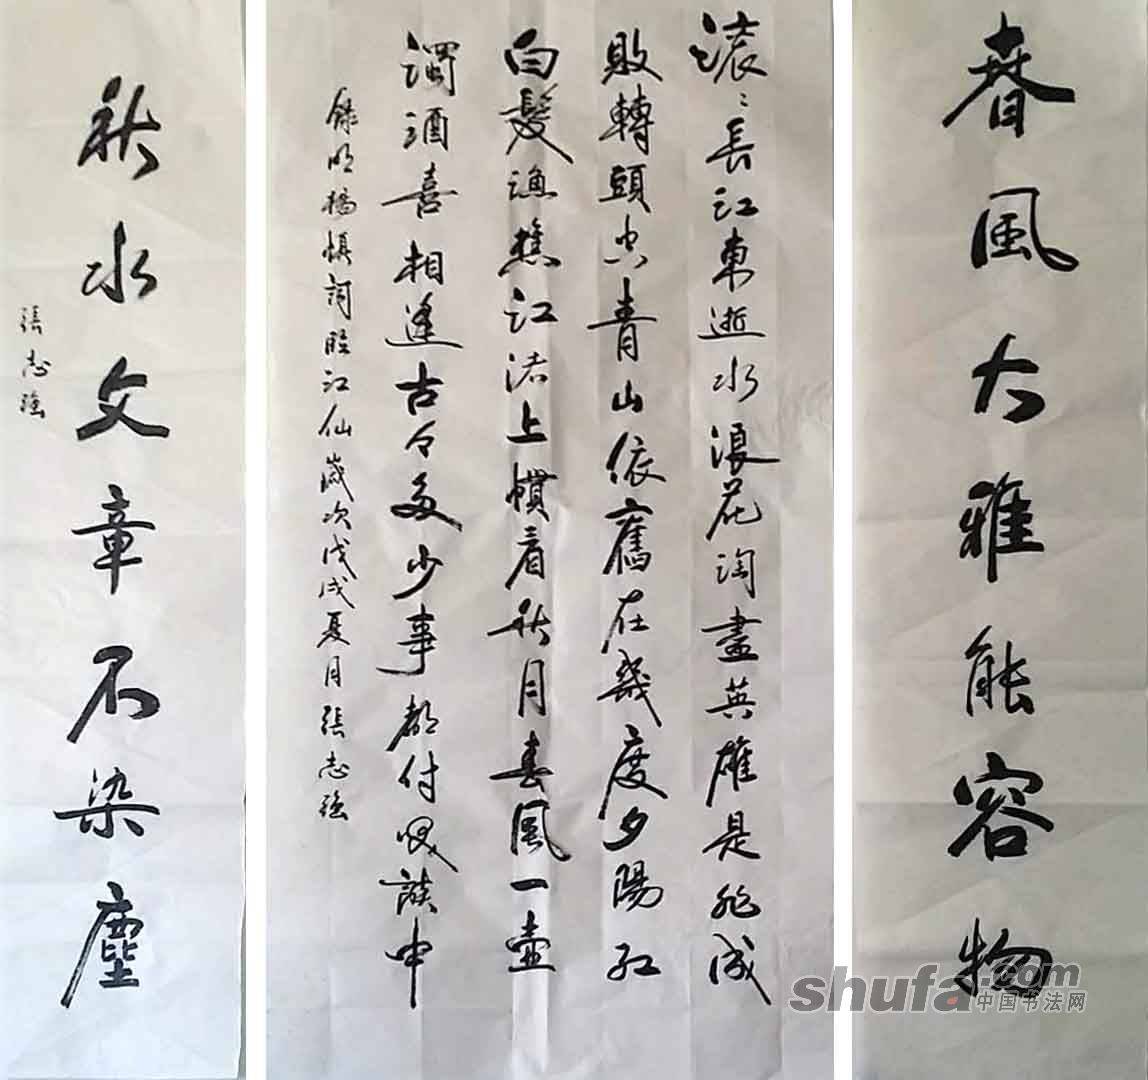 春風大雅能容物
滚〻長江東逝水浪花淘盡英雄是非成
敗轉頭空青山依舊在幾度夕陽紅
白髮漁樵江渚上慣看秋月春風一壺
濁酒喜相逢古今多少事都付笑談中
錄明楊慎詞臨江仙歲次戊戌夏月張志強
秋水文章不染塵
張志強
shufa.com
中国书法网